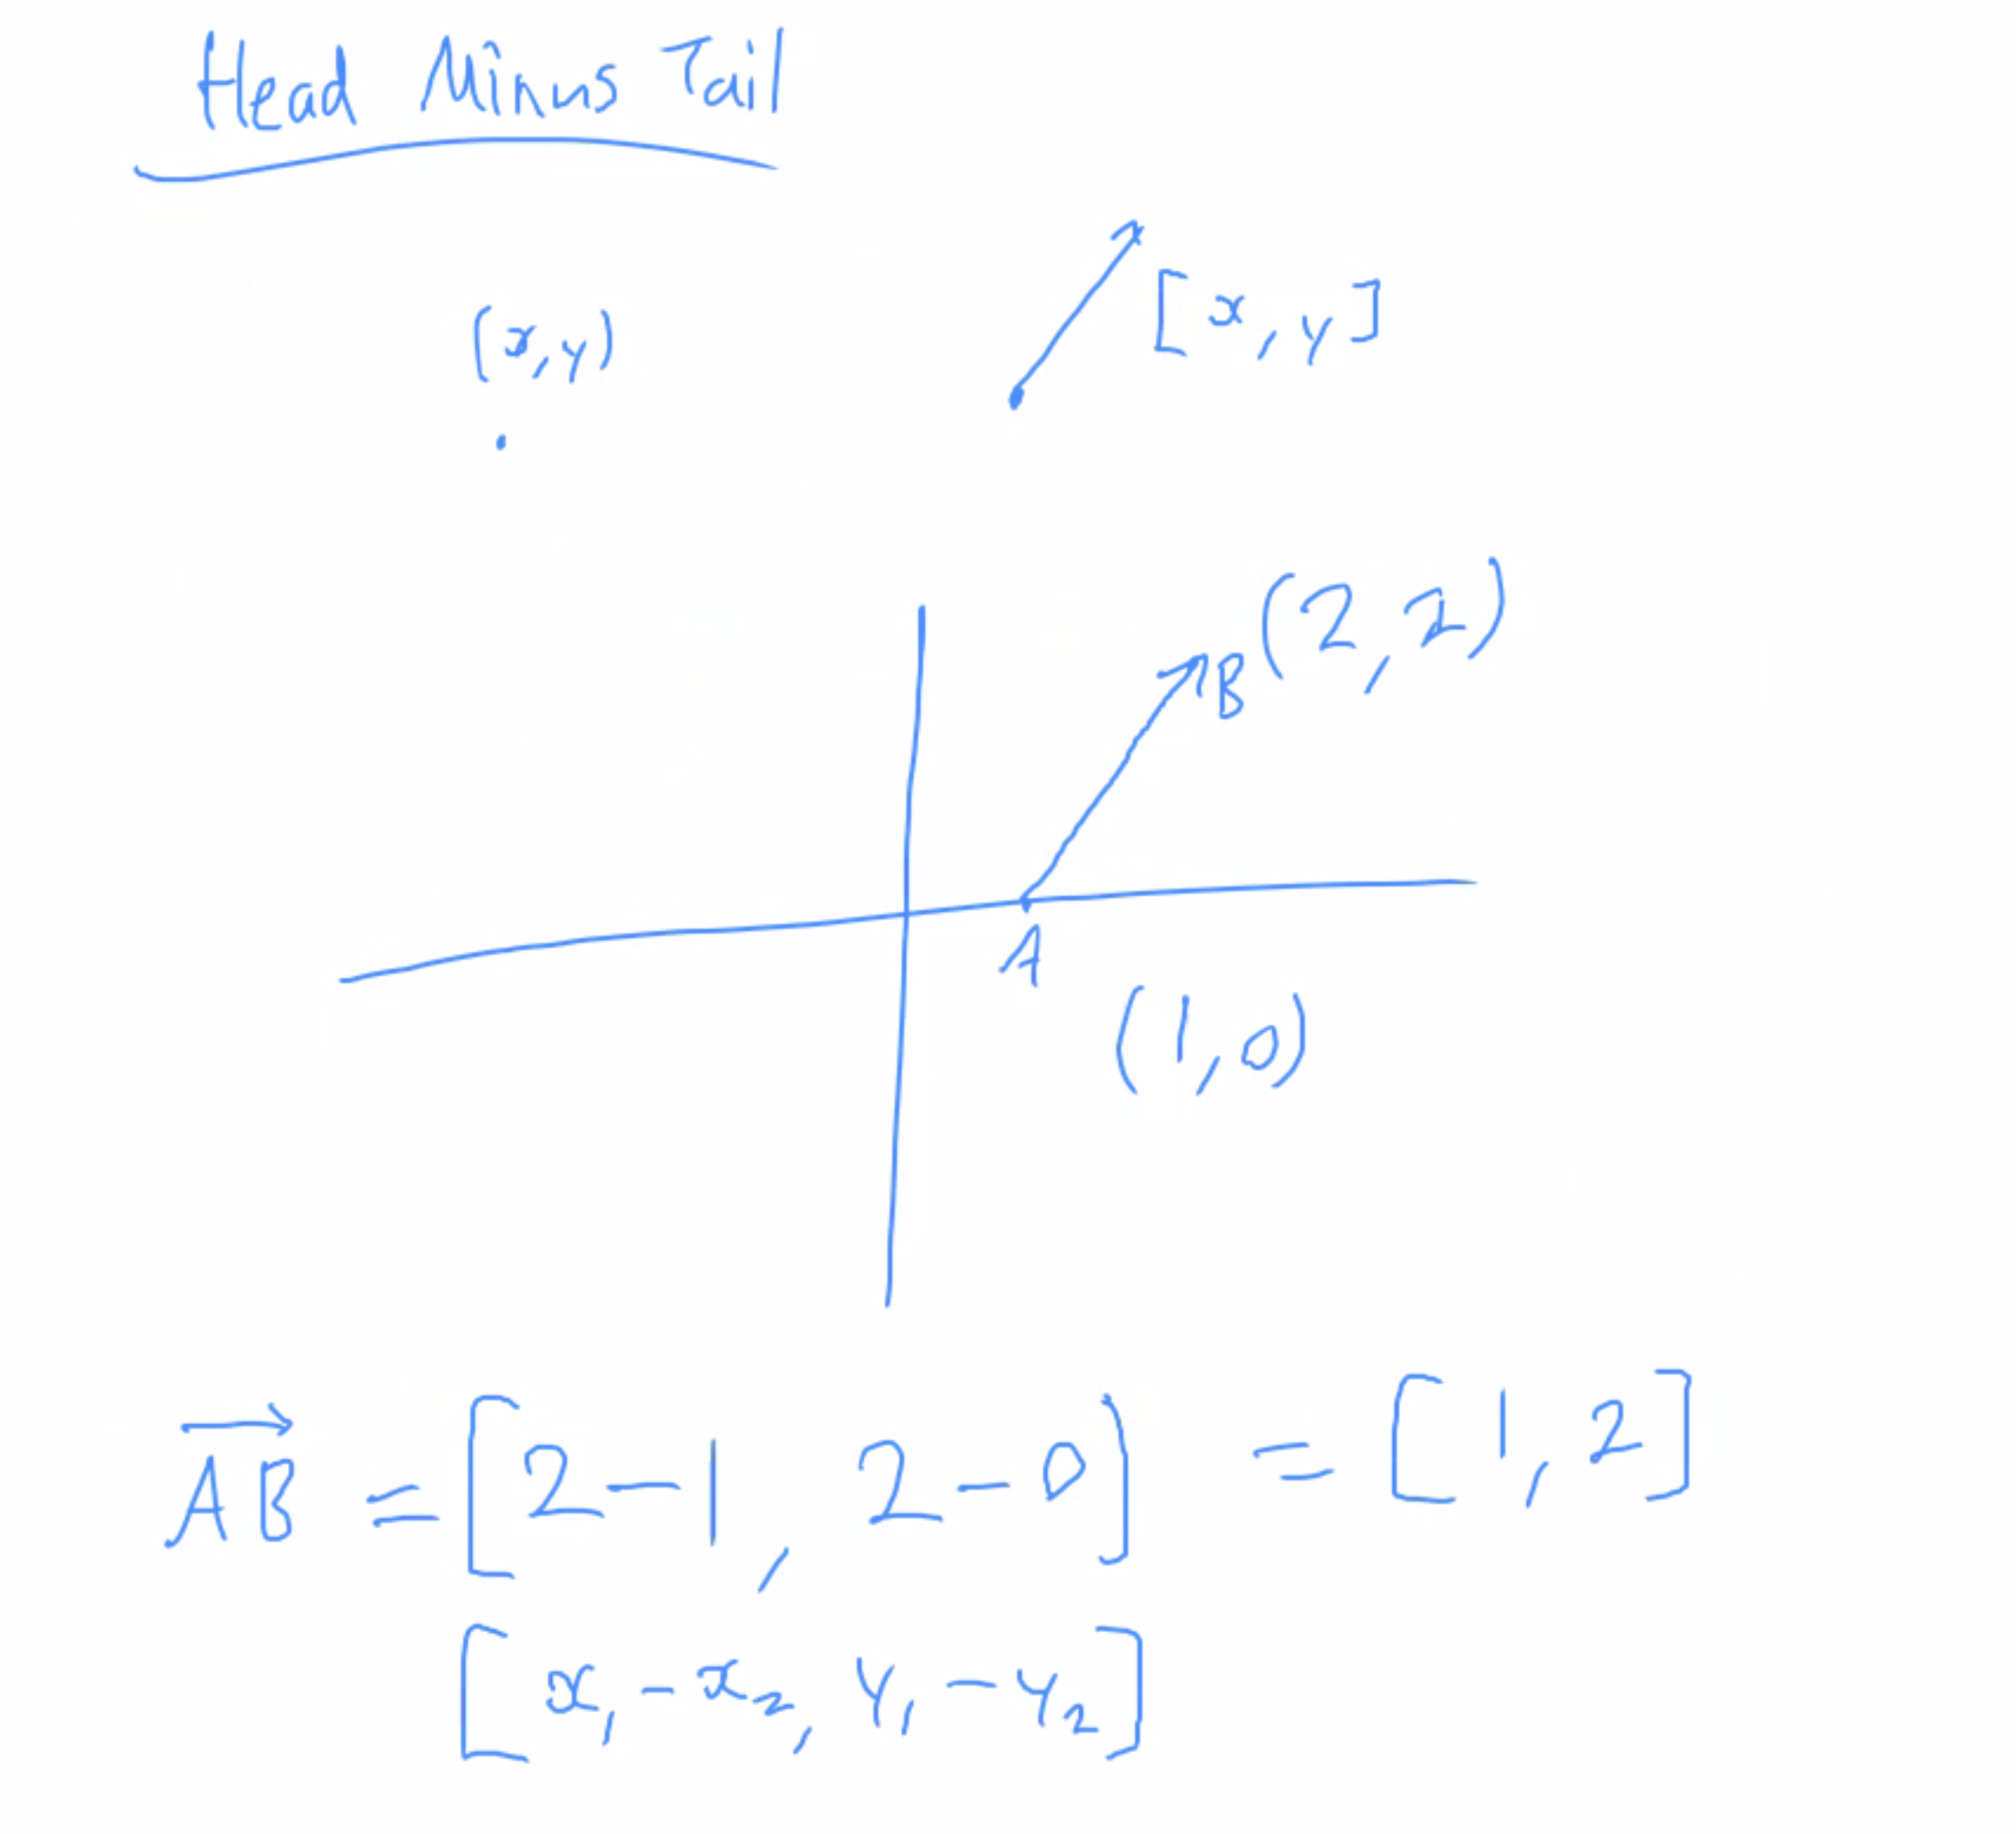 Head Minus Tail
(x,y)
[x,y]
B(2,2)
A
(1,0)
AB = [2-1, 2-0] = [1,2]
[x₁-x₂, y₁-y₂]